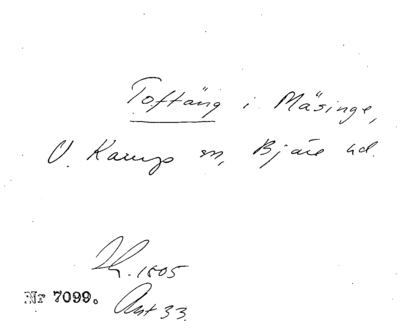 Toftäng i Mäsinge,
V. Karups sn, Bjäre hd.
Jh. 1505
Nr 7099. Ant 33